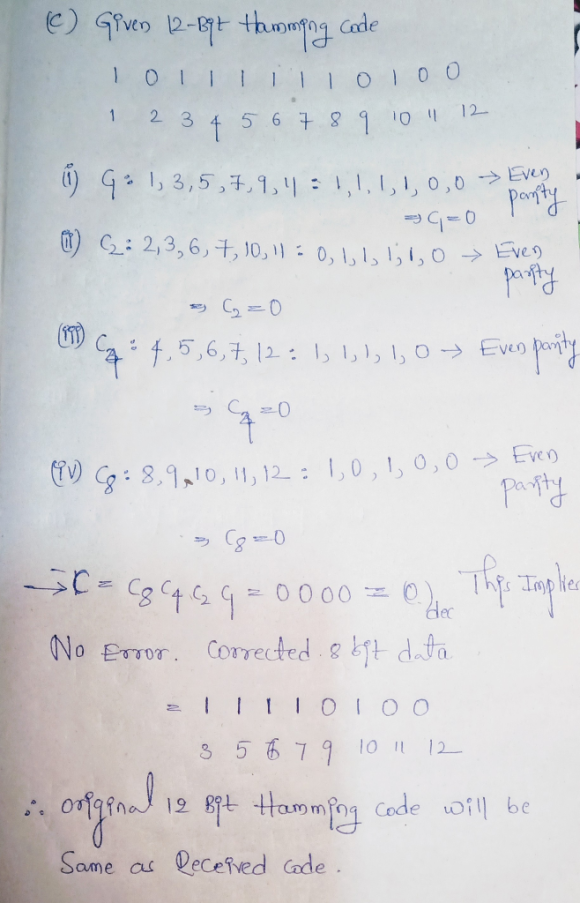 (c) Given 12-Bit Hamming code
1 0 1 1 1 1 1 1 0 1 0 0
1 2 3 4 5 6 7 8 9 10 11 12
(i) C1: 1, 3, 5, 7, 9, 11 = 1, 1, 1, 1, 0, 0 → Even parity
⇒ C1 = 0
(ii) C2: 2, 3, 6, 7, 10, 11 = 0, 1, 1, 1, 1, 0 → Even parity
⇒ C2 = 0
(iii) C4: 4, 5, 6, 7, 12: 1, 1, 1, 1, 0 → Even parity
⇒ C4 = 0
(iv) C8: 8, 9, 10, 11, 12: 1, 0, 1, 0, 0 → Even parity
⇒ C8 = 0
→ C = C8 C4 C2 C1 = 0000 = 0)dec This Implies
No Error. Corrected 8 bit data
= 1 1 1 1 0 1 0 0
3 5 6 7 9 10 11 12
∴ original 12 Bit Hamming code will be
Same as Received Code.